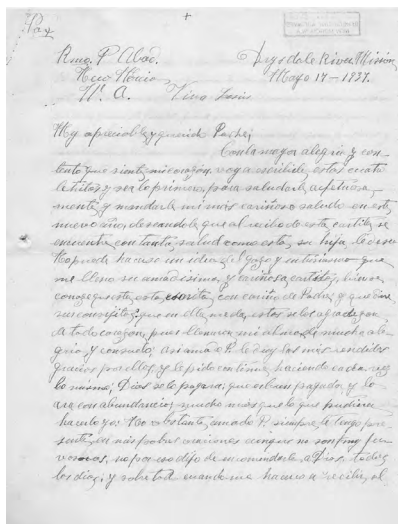 Pax
+
Rmo. P Abad.
Drysdale River Mision
New Norcia
Mayo 14 - 1937.
W. A.
Viva Jesús
My apreciable y querido Padre;
Con la mayor alegria y con
tento que siente mi corazon, voy a escribirle estas cuatro
letritas y sea lo primero, para saludarle afectuosa
mente y mandarle mi mas cariñoso saludo en este
nuevo año, deseandole que al recibo de esta cartita se
encuentre con tanta salud como esta su hija le desea
No puede hacerse un idea del gozo y entusiasmo que
me lleno su amadisima y cariñosa cartita, bien se
conoce que esta escrita con cariño de Padre, y que
sus consejitos que en ella me da, estos se los agradezco
de todo corazon, pues llenaron mi alma de mucha ale
gria y consuelo; asi amado P. le doy las mas rendidas
gracias por ellos y le pido continue haciendo cada vez
lo mismo, Dios se lo pagara; que es buen pagador y lo
ara con abundancia, mucho mas que lo que pudiera
hacerlo yo: No obstante, amado P. siempre le tengo pre
sente en mis pobres oraciones aunque no son
no por eso dejo de encomendarle a Dios todos
los dias; y sobre todo cuando me acerco a recibir al